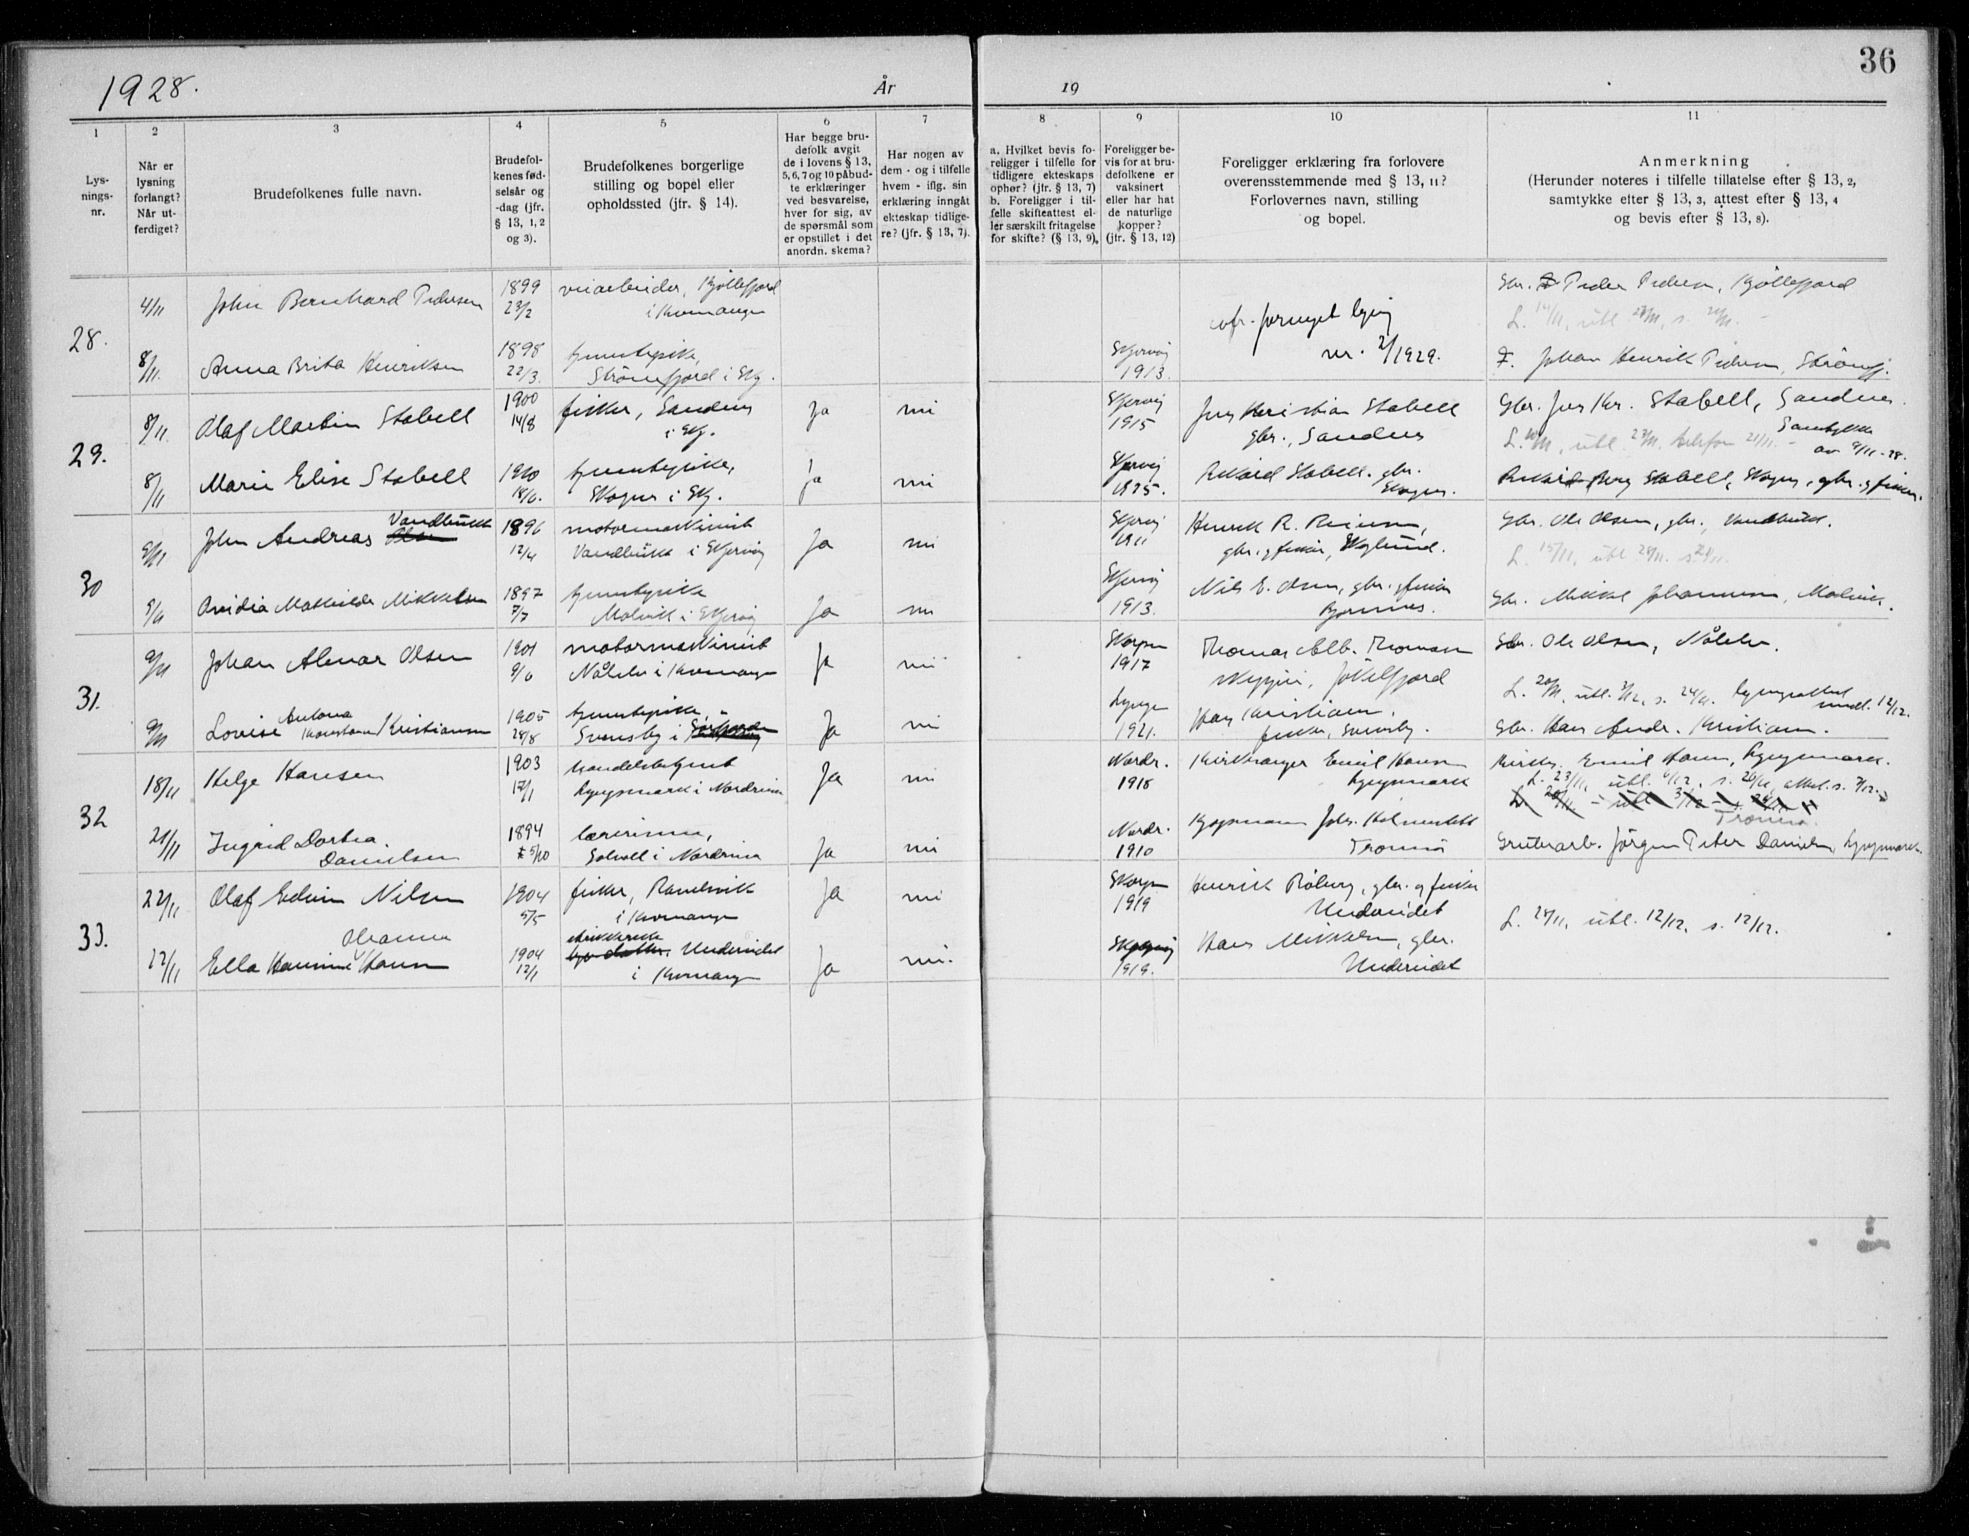 36
1928.
År
19
1
2
3
4
5
6
7
8
9
10
11
Lys-
nings-
nr.
Når er
lysning
forlangt?
Når ut-
ferdiget?
Brudefolkenes fulle navn.
Brudefol-
kenes fød-
selsår og
-dag (jfr.
§ 13, 1, 2
og 3).
Brudefolkenes borgerlige
stilling og bopel eller
opholdssted (jfr. § 14).
Har begge bru-
defolk avgit
de i lovens § 13,
5, 6, 7 og 10 påbud-
te erklæringer
ved besvarelse,
hver for sig, av
de spørsmål som
er opstillet i det
anordn. skema?
Har nogen av
dem - og i tilfelle
hvem - iflg. sin
erklæring inngåt
ekteskap tidlige-
re? (jfr. § 13, 7).
a. Hvilket bevis fo-
religger i tilfelle for
tidligere ekteskaps
ophør? (jfr. § 13, 7)
b. Foreligger i til-
felle skifteattest el-
ler særskilt fritagelse
for skifte? (§ 13, 9).
Foreligger be-
vis for at bru-
defolkene er
vaksinert
eller har hat
de naturlige
kopper?
(jfr. § 13, 12)
Foreligger erklæring fra forlovere
overensstemmende med § 13, 11?
Forlovernes navn, stilling
og bopel.
Anmerkning
(Herunder noteres i tilfelle tillatelse efter § 13, 2,
samtykke efter § 13, 3, attest efter § 13, 4
og bevis efter § 13, 8).
28.
4/11
John Bernhard Pedersen
1899
23/2
veiarbeider, Kjøllefjord
i Kvænangen
cfr. fornyet lysing
nr. 2/1929.
Gbr. Peder Pedersen, Kjøllefjord
8/11.
Anna Brita Henriksen
1898
22/3.
tjenestepike,
Strømfjord i Skj.
Skjervøy
1913.
F. Johan Henrik Pedersen, Strømfj.
29.
8/11.
Olaf Martin Stabell
1900
14/8
fisker, Sandnes
i Skj.
Ja
nei
Skjervøy
1915
Jens Kristian Stabell
gbr., Sandnes
Gbr. Jens Kr. Stabell, Sandnes.
Samtykke
av 9/11-28.
8/11
Marie Elise Stabell
1910
18/6.
tjenestepike,
Skognes i Skj.
Ja
nei
Skjervøy
1925.
Rikard Stabell. gbr.
Skognes.
Rikard Berg Stabell, Skognes, gbr. og fisker.
30
9/11
John Andreas Vandbukt
Olsen
1896
12/4
motormaskinist
Vandbukt i Skjervøy
Ja
nei
Skjervøy
1911
gbr. og fisker, Skoglund.
Gbr. Ole Olsen, gbr., Vandbukt.
Mathilde Mikkelsen
1897
7/7
tjenestepike
i Skjervøy
Ja
nei
Skjervøy
1913.
Nils E. Olsen, gbr. og fisker
Gbr. Mikkel Johannesen,
31.
9/11
Johan Almar Olsen
1901
9/6
motormaskinist
i Kvænangen
Ja
nei
1917
Thomas Alb. Thomassen
Jøkelfjord
Gbr. Ole Olsen,
9/11
Lovise Antona
Kristiansen
1905
28/8
tjenestepike,
Svensby i
Ja
nei
Lyngen
1921.
Hans Kristiansen.
fisker, Svensby.
Gbr. Hans Andr. Kristiansen.
32
18/11
Helge Hansen
1903
17/1
handelsbetjent
Lyngsmark i Nordreisa
Ja
nei
Nordr.
1918
Kirketjener Emil Hansen
Lyngsmark
Kirketj. Emil Hansen, Lyngsmark.
L. 23/11, utl. 6/12, s. 26/11, attest. s. 7/12.
Tromsø.
21/11
Ingrid Dortea
Danielsen
1894
5/10
lærerinne,
Solvoll i Nordreisa
Ja
nei
Nordr.
1910
Tromsø
Grubearb. Jörgen Peter Danielsen, Lyngsmark.
33.
22/11
Olaf Edvin Nilsen
1904
5/5
fisker,
i Kvænangen
Ja
nei
1919
Henrik Röberg, gbr. og fisker
Undereidet
L. 24/11, utl. 12/12, s. 12/12.
22/11
Ella Hansine Johanna
Hansen
1904
12/1
Undereidet
i Kvænangen
Ja
nei.
1919.
Hans Mikkelsen, gbr.
Undereidet